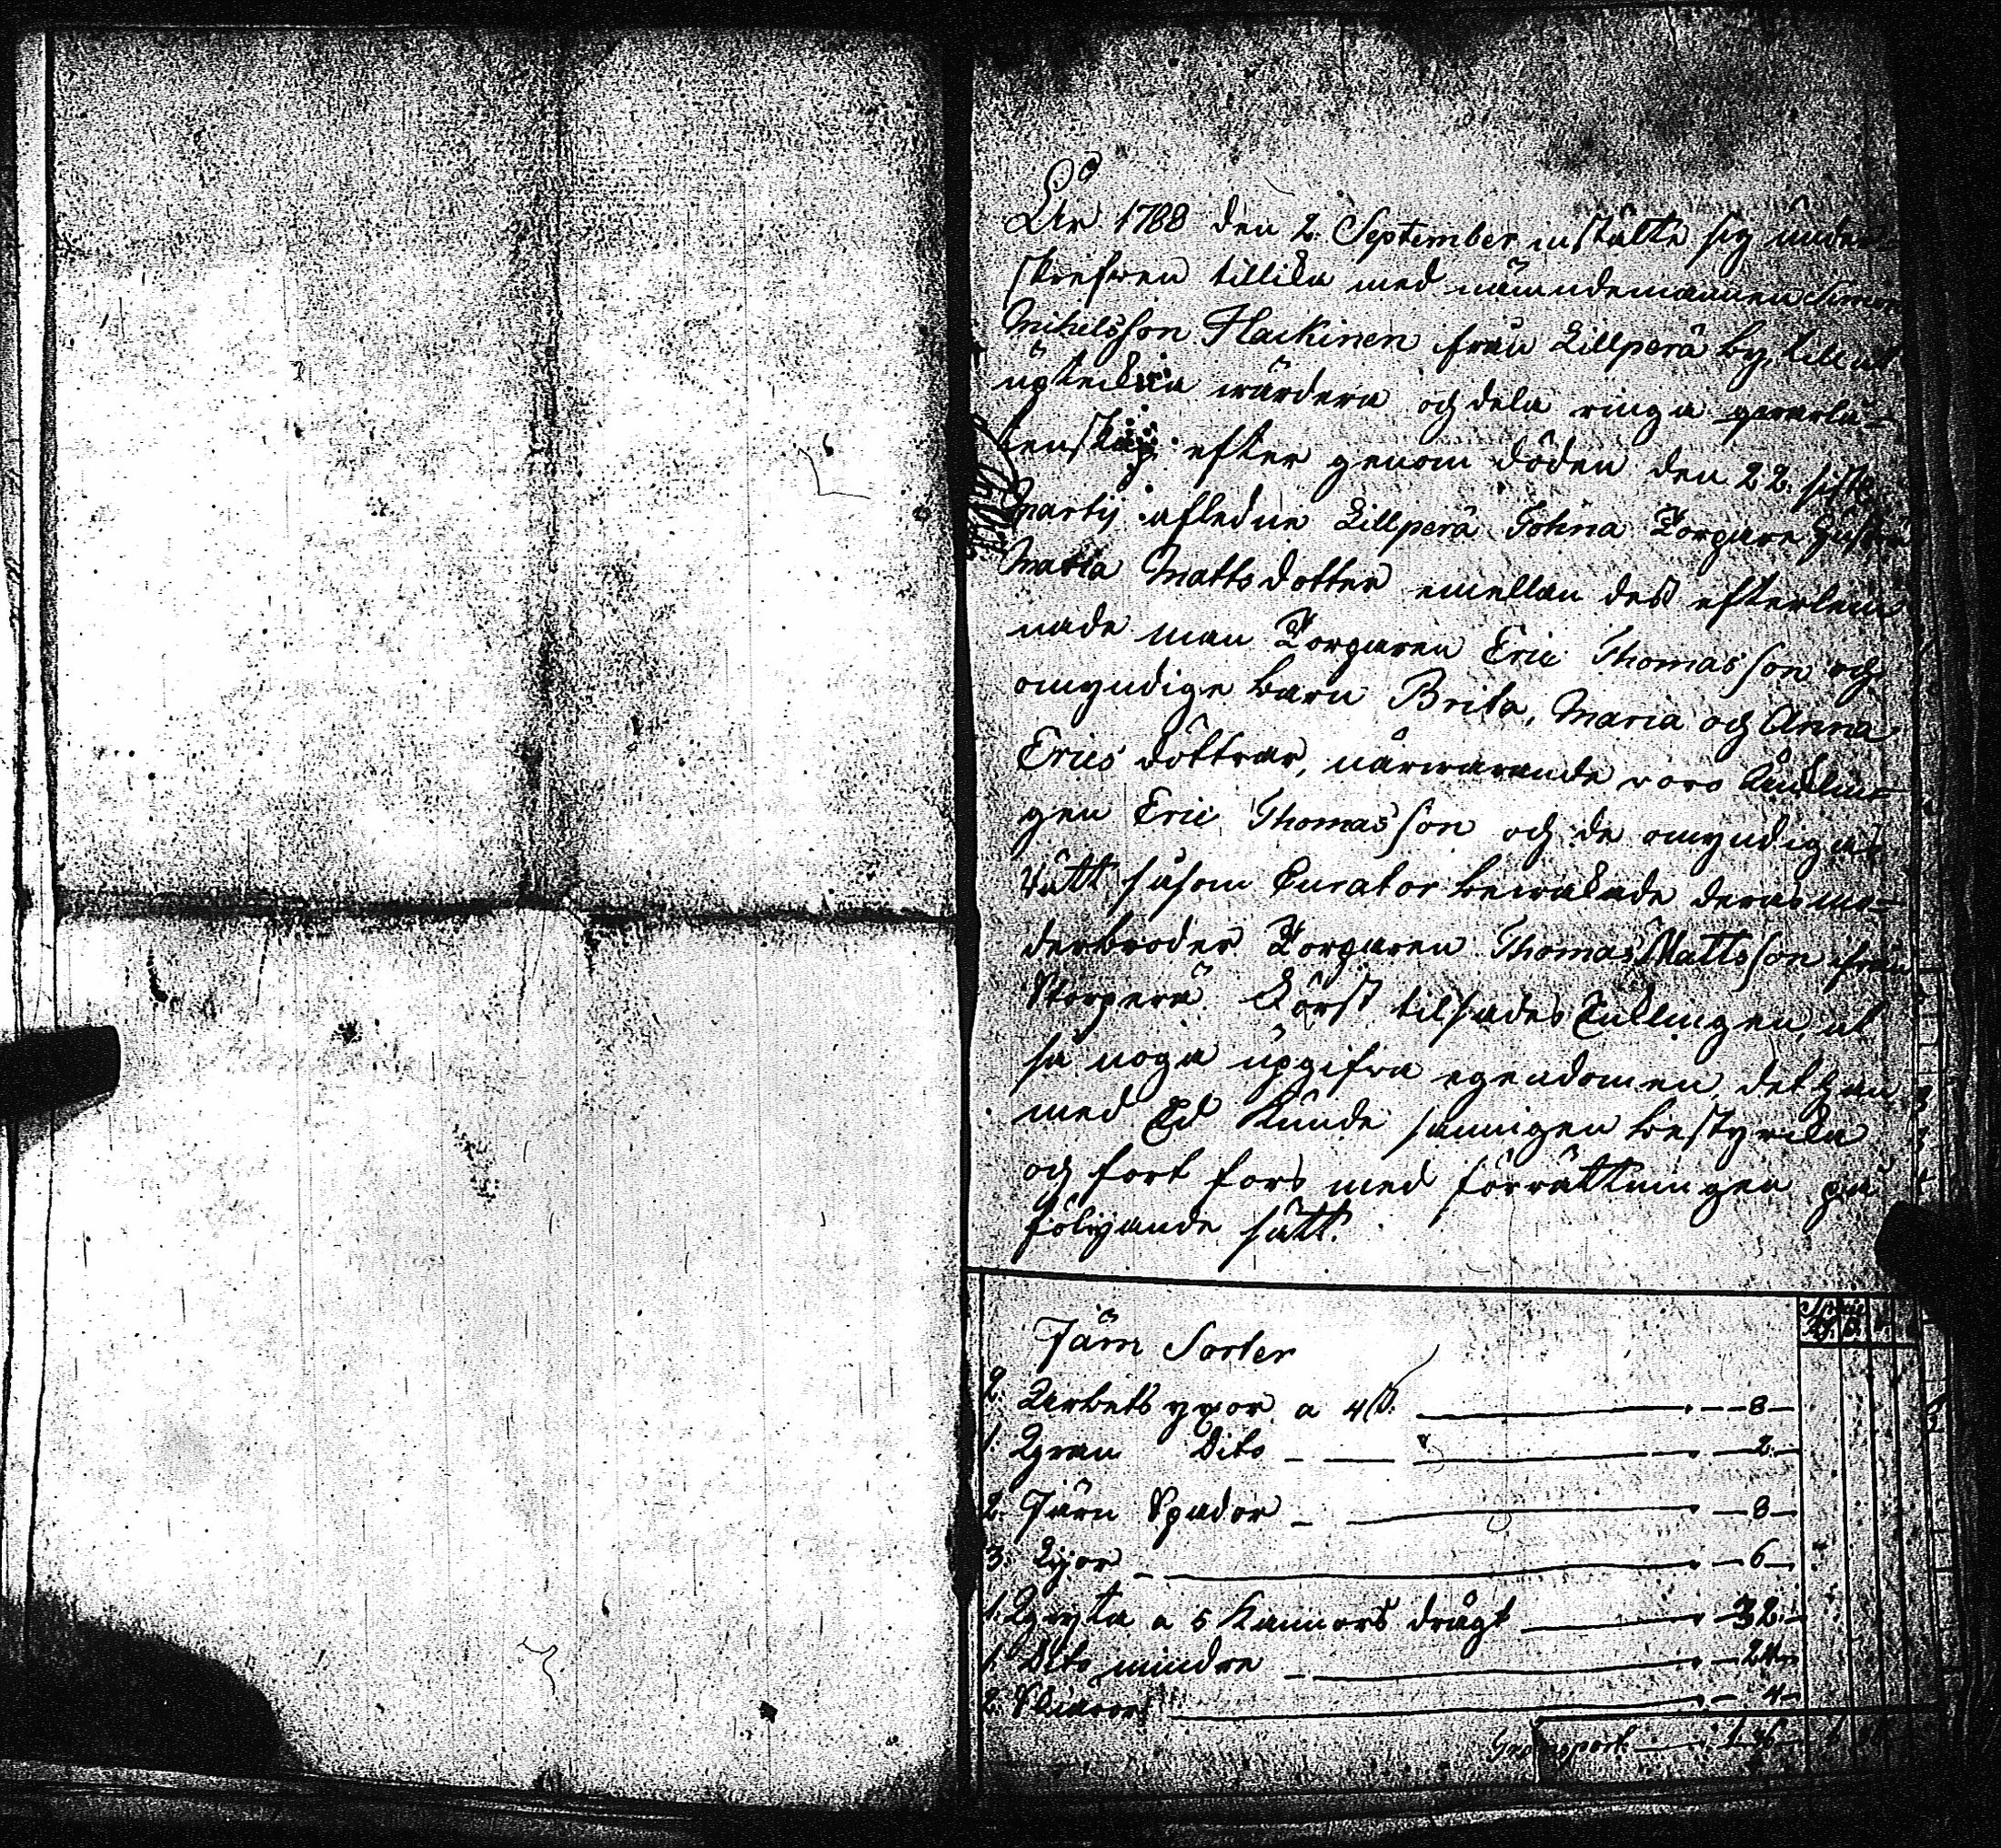 År 1788 den 2. September instälte sig under-
skrefven tillika med nämndemannen Simon
Michelsson Hackinen från Lillperä by, till at
upteckna wärdera och dela ringa qvarlå-
tenskap efter genom döden den 22. siste
Martij afledne Lillperä Johna Torpare hustru
Maria Mattsdotter emellan des efterlem-
nade man Torparen Eric Thomasson och
omyndige barn Brita, Maria och Anna
Erics döttrar, närwarande woro Änklin-
gen Eric Thomasson och de omyndigas
rätt såsom Curator bewakade deras mo-
derbroder Torparen Thomas Mattsson ifrån
Storperä. Först tilsades Enklingen, at
så noga upgifva egendomen, det han
med Ed kunde sanningen bestyrcka
och fort fors med förrättningen på
följande sätt.
Järn Sorter
2. Arbets yxor a 4 ß. 8
1. Gran Dito 2
2. Järn Spador 8
3. Lijor 6
1. Gryta a 5 Kannors drägt 32
1. Dito mindre 24
2. Skäror 4
Transport 1 36